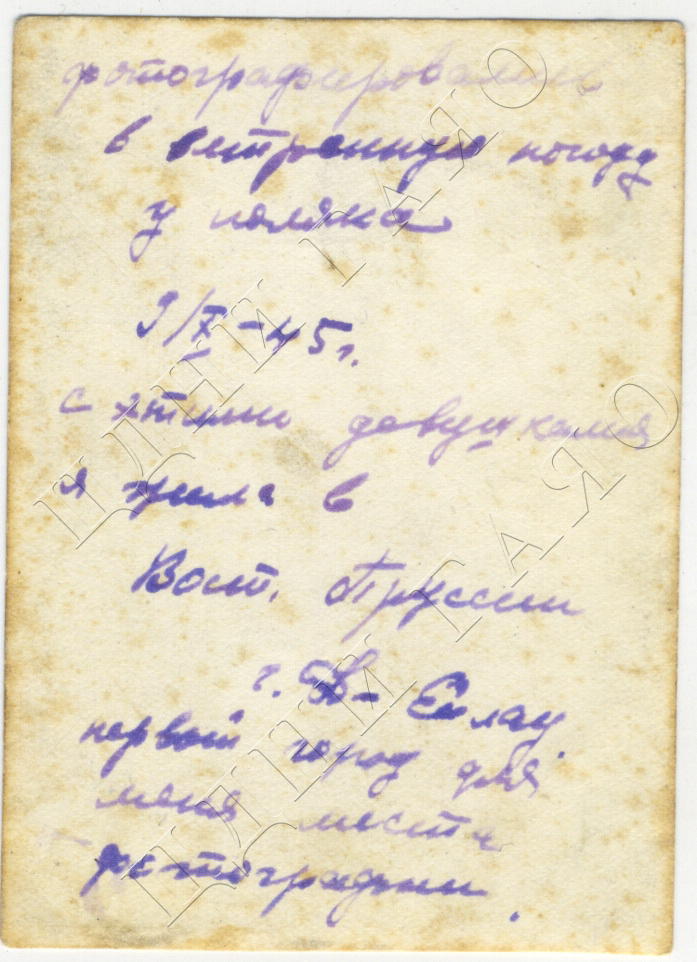 фотографировались
в ветренную погоду
у поляка
9/X-45 г.
с этими девушками
я жила в
Вост. Пруссии
г. Ейлау
первый город для
меня места
фотографии.
ЦДНИ ГАЯО
ЦДНИ ГАЯО